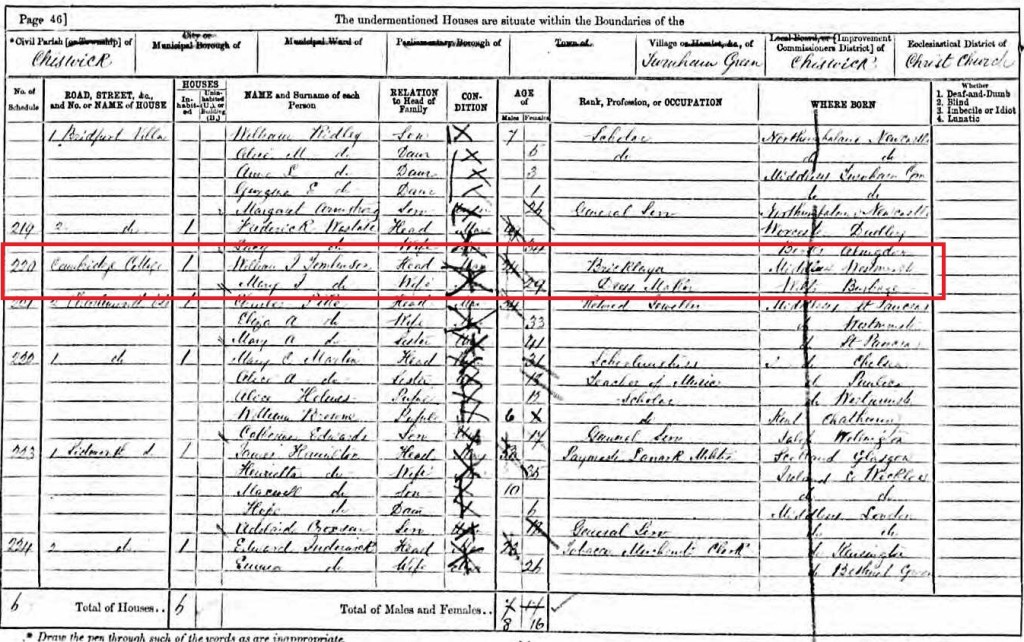 Page 46] The undermentioned Houses are situate within the Boundaries of the
*Civil Parish [or Township] of City or Municipal Borough of Municipal Ward of Parliamentary Borough of Town of Village or Hamlet, &c., of Local Board, or [Improvement Commissioners District] of Ecclesiastical District of
Chiswick Turnham Green Chiswick Christ Church
No. of Schedule ROAD, STREET, &c., and No. or NAME of HOUSE HOUSES Inhabited Uninhabited (U.), or Building (B.) NAME and Surname of each Person RELATION to Head of Family CONDITION AGE of Males Females Rank, Profession, or OCCUPATION WHERE BORN Whether 1. Deaf-and-Dumb 2. Blind 3. Imbecile or Idiot 4. Lunatic
1 William Ridley Son 7 Scholar Newcastle
Alice M do Daur 5 do do do
E do Daur 3 Middlesex
Georgina E do Daur 1 do do
Margaret Armstrong Serv 26 General Serv Newcastle
219 2 do 1 Frederick Head Worcester Dudley
do Wife Berks Abingdon
220 Cambridge Cottage 1 William J Tomlinson Head Bricklayer Middlesex
Mary J do Wife 29 Dress Maker Wilts Burbage
1 Head Retired Middlesex St Pancras
Eliza A do Wife 33 do Westminster
Mary A do Sister St Pancras
222 1 do 1 Mary E Martin Head Schoolmistress do Chelsea
Alice A do Sister Teacher of Music do Pimlico
Alice Holmes Pupil 12 Scholar do
William Browne Pupil 6 do Kent Chatham
Catherine Edwards Serv 17 General Serv Salop Wellington
223 1 1 James Hamilton Head Paymaster Lanark Militia Scotland Glasgow
Henrietta do Wife 35 Ireland Co Wicklow
Maxwell do Son 10 do do
Hope do Daur 6 Middlesex London
Adelaid Serv General Serv do do
224 2 do 1 Edward Head Tobacco Merchants Clerk do Kensington
Emma do Wife 26 do Bethnal Green
6 Total of Houses.. 6 Total of Males and Females.. 7 17
8 16
* Draw the pen through such of the words as are inappropriate.